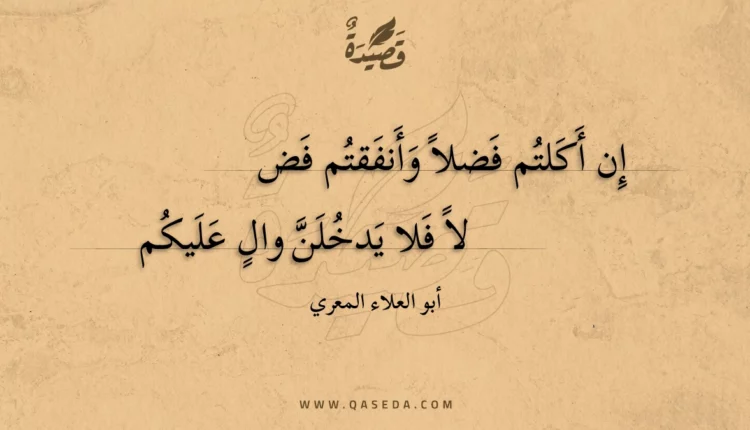 قَصِيدَةٌ
إِن أَكَلتُم فَضلاً وَأَنفَقتُم فَض
لاً فَلا يَدخُلَنَّ والٍ عَلَيكُم
أبو العلاء المعري
WWW.QASEDA.COM